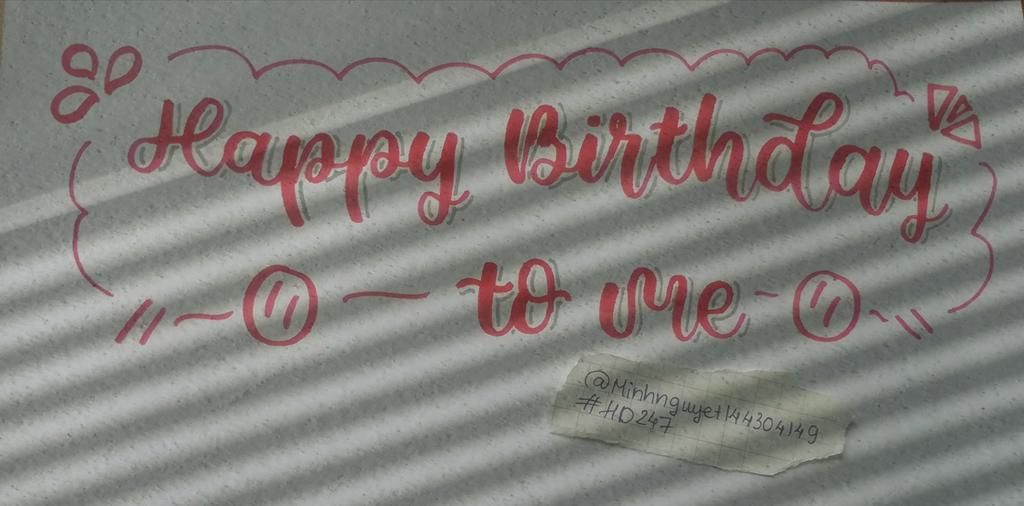 Happy Birthday
to me
@Minhnguyet144304149
#HD247